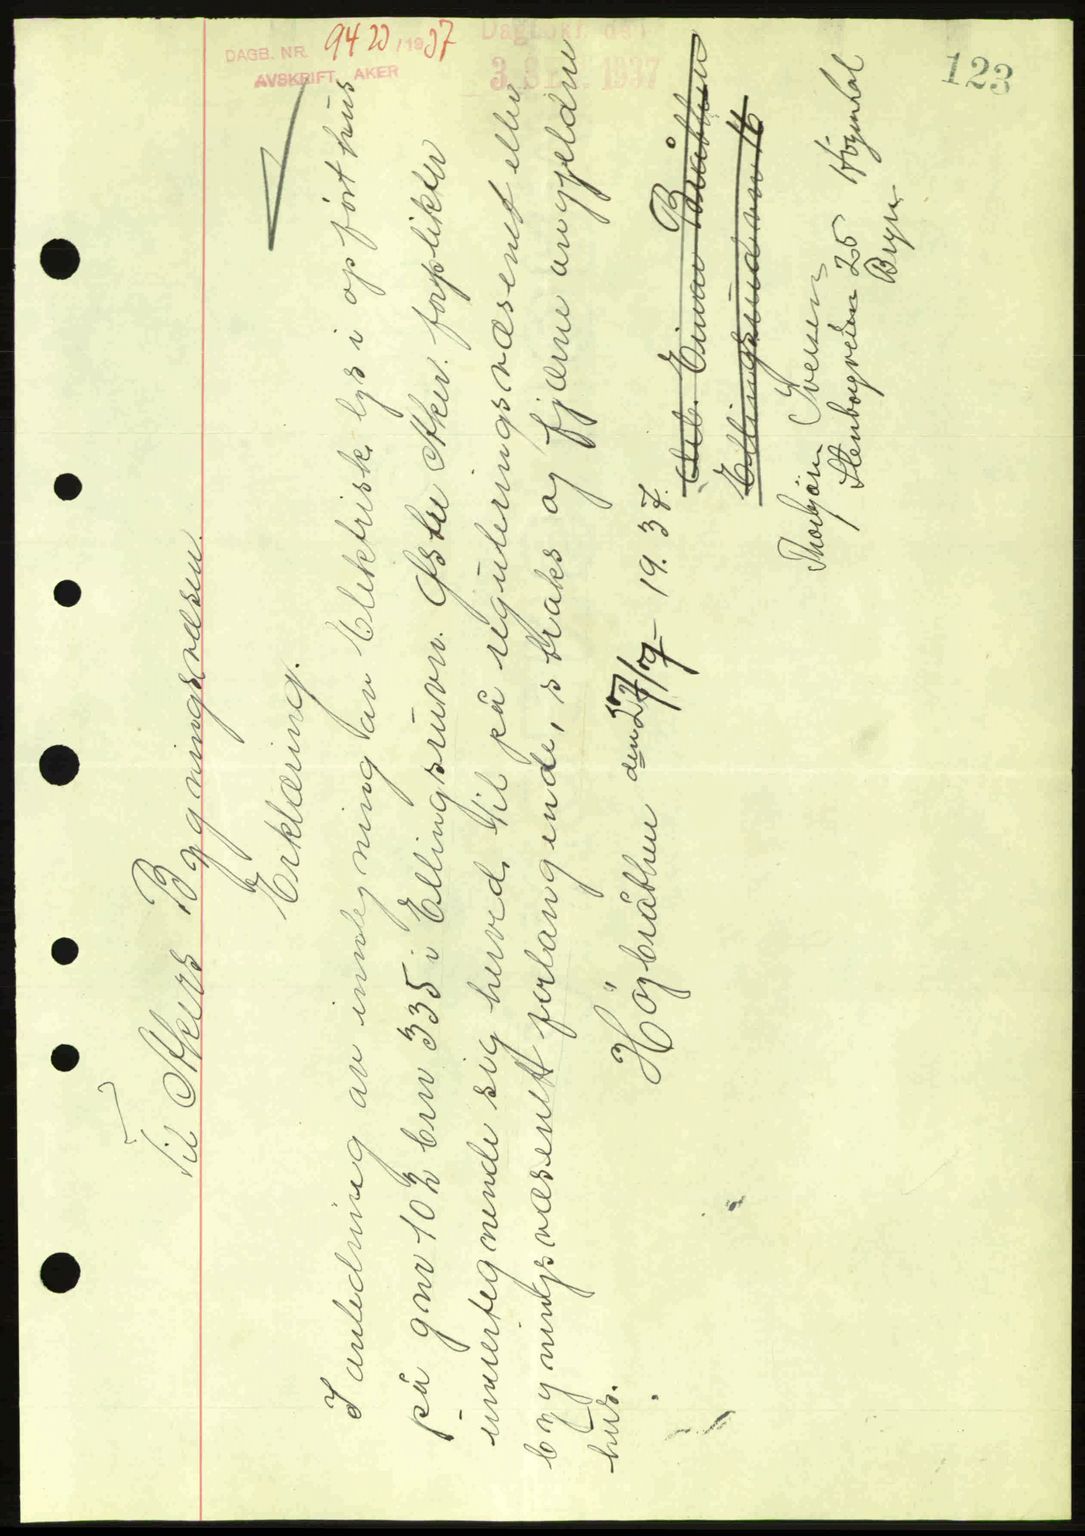 DAGB. NR. 9420/1937
AVSKRIFT, AKER
Dagbokf. den
3 SEP. 1937
123
Til Akers Bygningsvæsen.
Erklæring.
I anledning av innlegning av Elektrisk lys i opført hus
på gnr 102 bnr 335 i Ellingsrudvn. Østre Aker. forplikter
undertegnende sig herved, til på reguleringsvæsenet eller
bygningsvæsenets forlangende, straks og fjerne angjeldne
hus.
Högbråthen den 27/7 - 1937.
Einar Bråthen
Ellingsrudveien 16
Thorbjörn Iversen
Stenborgveien 25 Høyenhal
Bryn